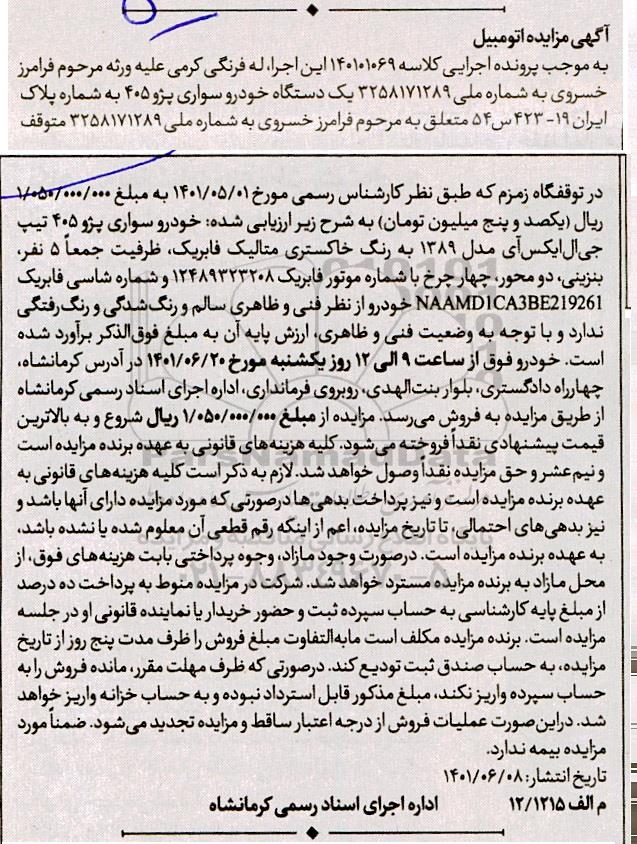 آگهی مزایده اتومبیل
به موجب پرونده اجرایی کلاسه ۱۴۰۱۰۱۰۶۹ این اجرا، له فرنگی کرمی علیه ورثه مرحوم فرامرز
خسروی به شماره ملی ۳۲۵۸۱۷۱۲۸۹ یک دستگاه خودرو سواری پژو ۴۰۵ به شماره پلاک
ایران ۱۹- ۴۲۳س۵۴ متعلق به مرحوم فرامرز خسروی به شماره ملی ۳۲۵۸۱۷۱۲۸۹ متوقف
در توقفگاه زمزم که طبق نظر کارشناس رسمی مورخ ۱۴۰۱/۰۵/۰۱ به مبلغ ۱/۰۵۰/۰۰۰/۰۰۰
ریال (یکصد و پنج میلیون تومان) به شرح زیر ارزیابی شده: خودرو سواری پژو ۴۰۵ تیپ
جی‌ال‌ایکس‌آی مدل ۱۳۸۹ به رنگ خاکستری متالیک فابریک، ظرفیت جمعاً ۵ نفر،
بنزینی، دو محور، چهارچرخ با شماره موتور فابریک ۱۲۴۸۹۳۲۳۲۰۸ و شماره شاسی فابریک
NAAMD1CA3BE219261 خودرو از نظر فنی و ظاهری سالم و رنگ‌شدگی و رنگ‌رفتگی
ندارد و با توجه به وضعیت فنی و ظاهری، ارزش پایه آن به مبلغ فوق‌الذکر برآورد شده
است. خودرو فوق از ساعت ۹ الی ۱۲ روز یکشنبه مورخ ۱۴۰۱/۰۶/۲۰ در آدرس کرمانشاه،
چهارراه دادگستری، بلوار بنت‌الهدی، روبروی فرمانداری، اداره اجرای اسناد رسمی کرمانشاه
از طریق مزایده به فروش می‌رسد. مزایده از مبلغ ۱/۰۵۰/۰۰۰/۰۰۰ ریال شروع و به بالاترین
قیمت پیشنهادی نقداً فروخته می‌شود. کلیه هزینه‌های قانونی به عهده برنده مزایده است
و نیم‌عشر و حق مزایده نقداً وصول خواهد شد. لازم به ذکر است کلیه هزینه‌های قانونی به
عهده برنده مزایده است و نیز پرداخت بدهی‌ها درصورتی که مورد مزایده دارای آنها باشد و
نیز بدهی‌های احتمالی، تا تاریخ مزایده، اعم از اینکه رقم قطعی آن معلوم شده یا نشده باشد،
به عهده برنده مزایده است. درصورت وجود مازاد، وجوه پرداختی بابت هزینه‌های فوق، از
محل مازاد به برنده مزایده مسترد خواهد شد. شرکت در مزایده منوط به پرداخت ده درصد
از مبلغ پایه کارشناسی به حساب سپرده ثبت و حضور خریدار یا نماینده قانونی او در جلسه
مزایده است. برنده مزایده مکلف است مابه‌التفاوت مبلغ فروش را ظرف مدت پنج روز از تاریخ
مزایده، به حساب صندق ثبت تودیع کند. درصورتی که ظرف مهلت مقرر، مانده فروش را به
حساب سپرده واریز نکند، مبلغ مذکور قابل استرداد نبوده و به حساب خزانه واریز خواهد
شد. دراین‌صورت عملیات فروش از درجه اعتبار ساقط و مزایده تجدید می‌شود. ضمناً مورد
مزایده بیمه ندارد.
تاریخ انتشار: ۱۴۰۱/۰۶/۰۸
م الف ۱۲/۱۲۱۵ اداره اجرای اسناد رسمی کرمانشاه
ParsNamadData
۰۲۱-۸۸۳۴۹۶۷۰-۵